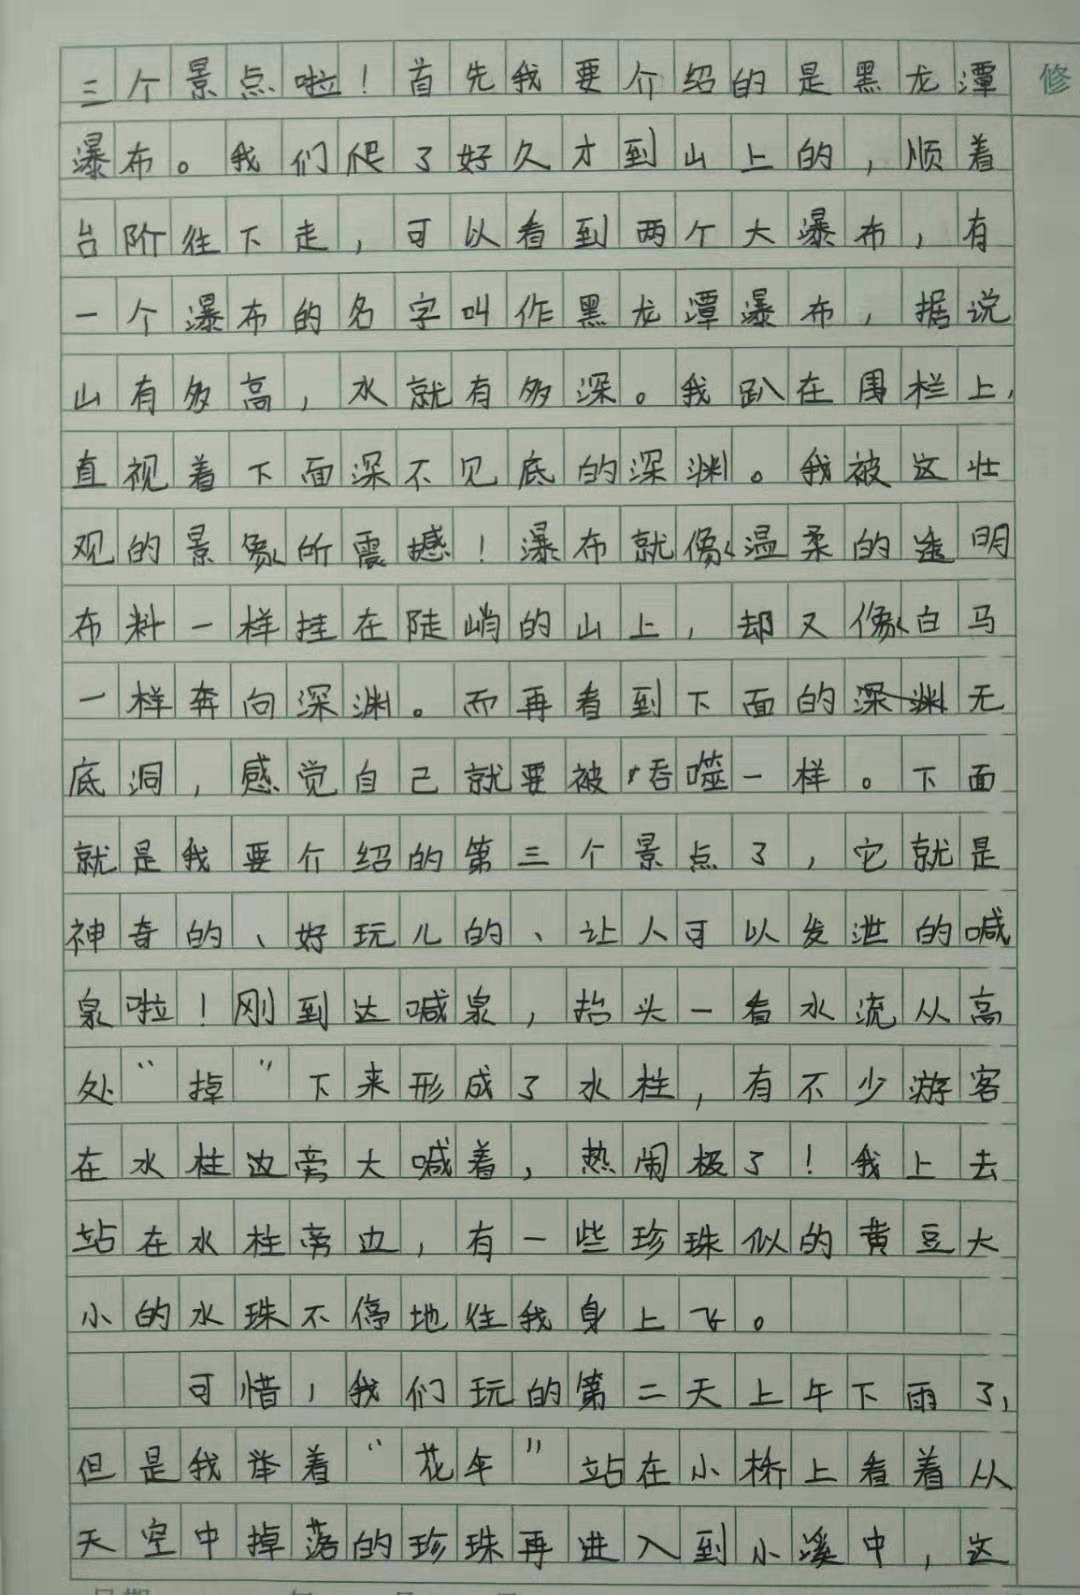 三个景点啦！首先我要介绍的是黑龙潭
修
瀑布。我们爬了好久才到山上的，顺着
台阶往下走，可以看到两个大瀑布，有
一个瀑布的名字叫作黑龙潭瀑布，据说
山有多高，水就有多深。我趴在围栏上，
直视着下面深不见底的深渊。我被这壮
观的景象所震撼！瀑布就像温柔的透明
布料一样挂在陡峭的山上，却又像白马
一样奔向深渊。而再看到下面的深渊无
底洞，感觉自己就要被吞噬一样。下面
就是我要介绍的第三个景点了，它就是
神奇的、好玩儿的、让人可以发泄的喊
泉啦！刚到达喊泉，抬头一看水流从高
处“掉”下来形成了水柱，有不少游客
在水柱边旁大喊着，热闹极了！我上去
站在水柱旁边，有一些珍珠似的黄豆大
小的水珠不停地往我身上飞。
可惜，我们玩的第二天上午下雨了，
但是我举着“花伞”站在小桥上看着从
天空中掉落的珍珠再进入到小溪中，这